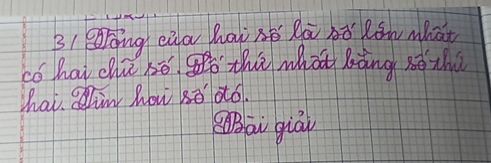 3/ Tổng của hai số là số lớn nhất
có hai chữ số. Số thứ nhất bằng số thứ
hai. Tìm hai số đó.
Bài giải